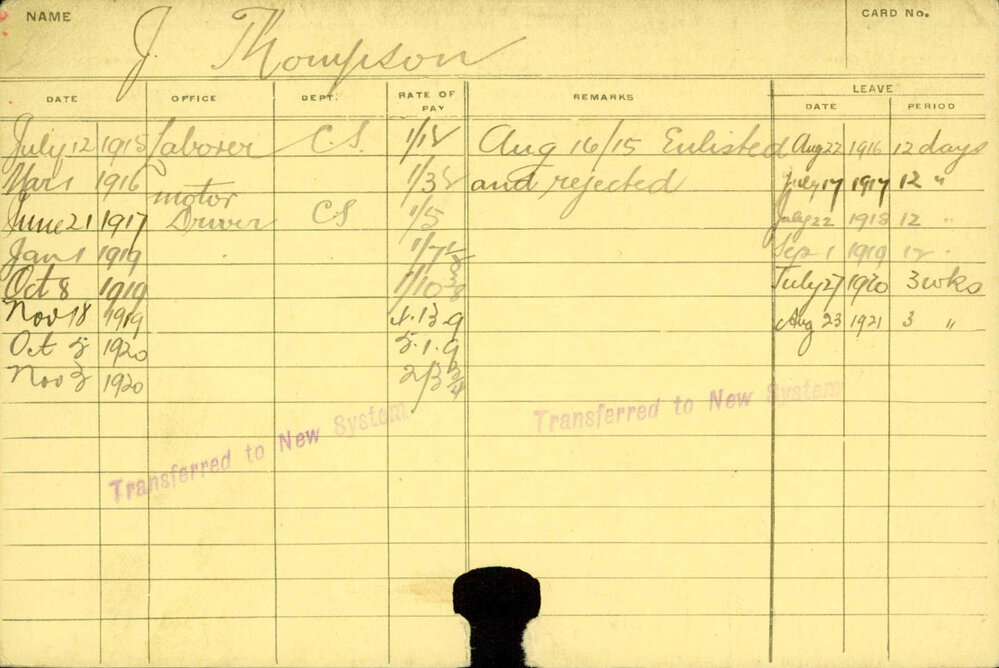 NAME J. Thompson CARD No.
DATE OFFICE DEPT. RATE OF PAY REMARKS LEAVE
DATE PERIOD
July 12 1915 Laborer C.S. Aug 16/15 Enlisted Aug 22 1916 12 days
Mar 1 1916 and rejected July 17 1917 12 "
June 21 1917 motor Driver CS 1/5 July 22 1918 12 "
Jan 1 1919 1/7 1/2 Sep 1 1919 12 "
Oct 8 1919 July 27 1920 3 wks
Nov 18 1919 4.13.9 Aug 23 1921 3 "
Oct 1920 5.1.9
Nov 3 1920 2/3
Transferred to New System
Transferred to New System